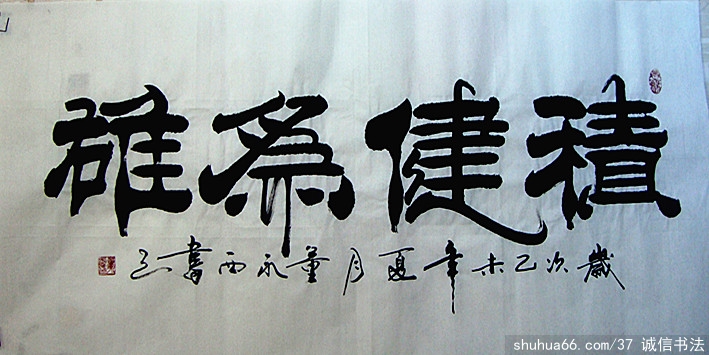 積健為雄
歲次乙未年夏月董永西書
shuhua66.com/37 诚信书法